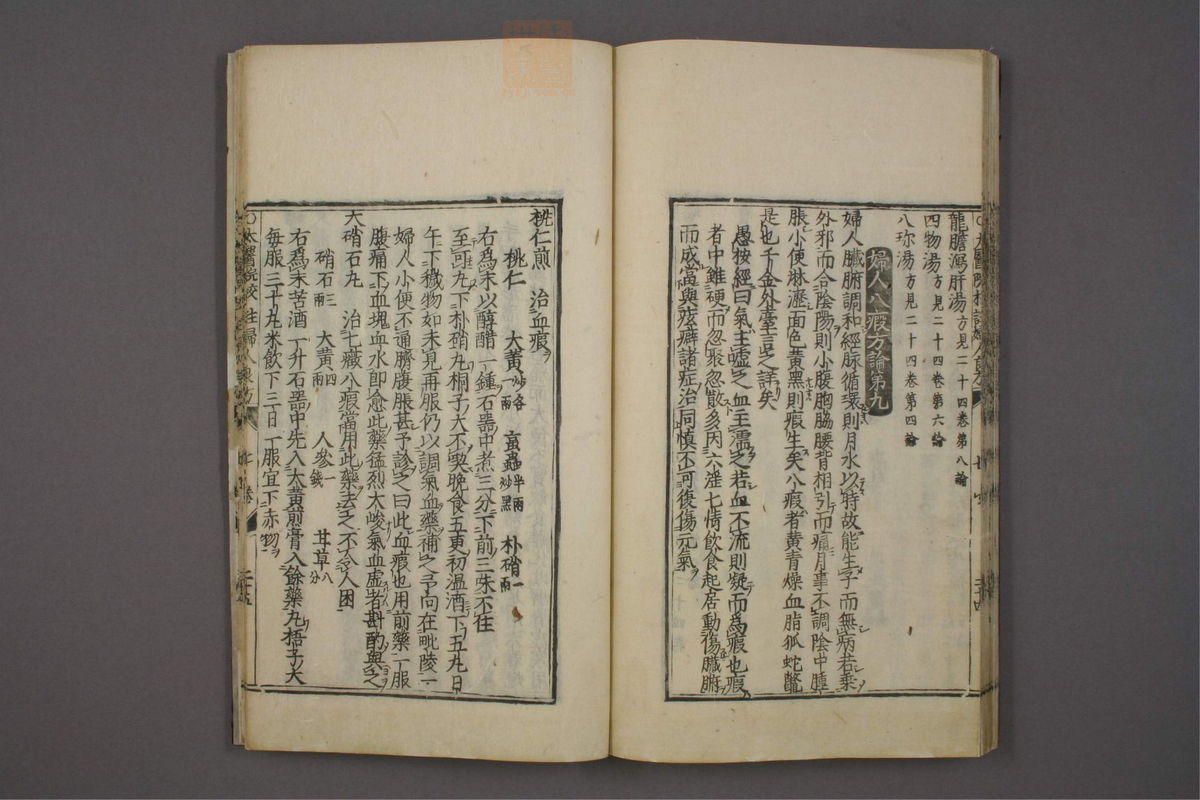 龍膽瀉肝湯方見二十四卷第八論
四物湯方見二十四卷第六論
八珎湯方見二十四卷第四論
婦人八瘕方論第九
婦人臓腑調和經脉循環則月水以時故能生子而無病若乗
外邪而合陰陽則小腹胸脇腰背相引而痛月事不調陰中腫
脹小便淋瀝面色黄黑則瘕生矣八瘕者黄青燥血脂狐蛇鼈
是也千金外臺言之詳矣
愚按經曰氣主噓之血主濡之若血不流則凝而為瘕也瘕
者中雖硬而忽聚忽散多因六淫七情飲食起居動傷臓腑
而成當與痃癖諸症治同慎不可復傷元氣
桃仁煎 治血瘕
桃仁 大黄炒各一兩 䖟蟲炒黑半兩 朴硝一兩
右為末以醇醋一鍾石器中煮三分下前三味不住手
至可丸下朴硝丸桐子大不喫晩食五更初温酒下五丸日
午下穢物如未見再服仍以調氣血藥補之予向在毗陵一
婦人小便不通臍腹脹甚予診之曰此血瘕也用前藥一服
腹痛下血塊血水即愈此藥猛烈大峻氣血虚者斟酌與之
大硝石丸 治七癥八瘕當用此藥去之不令人困
硝石三兩 大黄四兩 人參一錢 甘草八分
右為末苦酒一升石器中先入大黄煎膏入餘藥丸梧子大
毎服三十丸米飲下三日一服宜下赤物